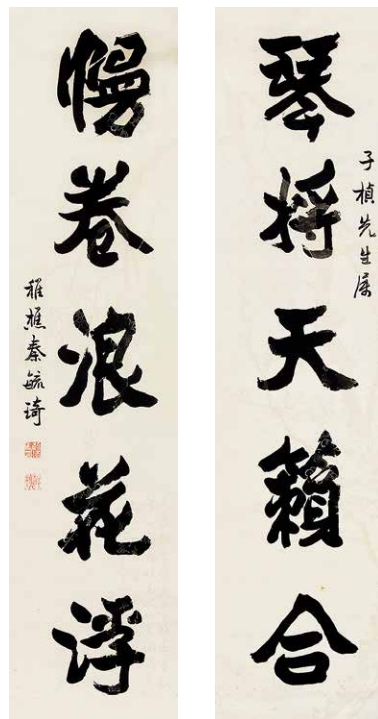 琴将天籟合
子楨先生属
幔卷浪花浮
稚樵秦毓琦